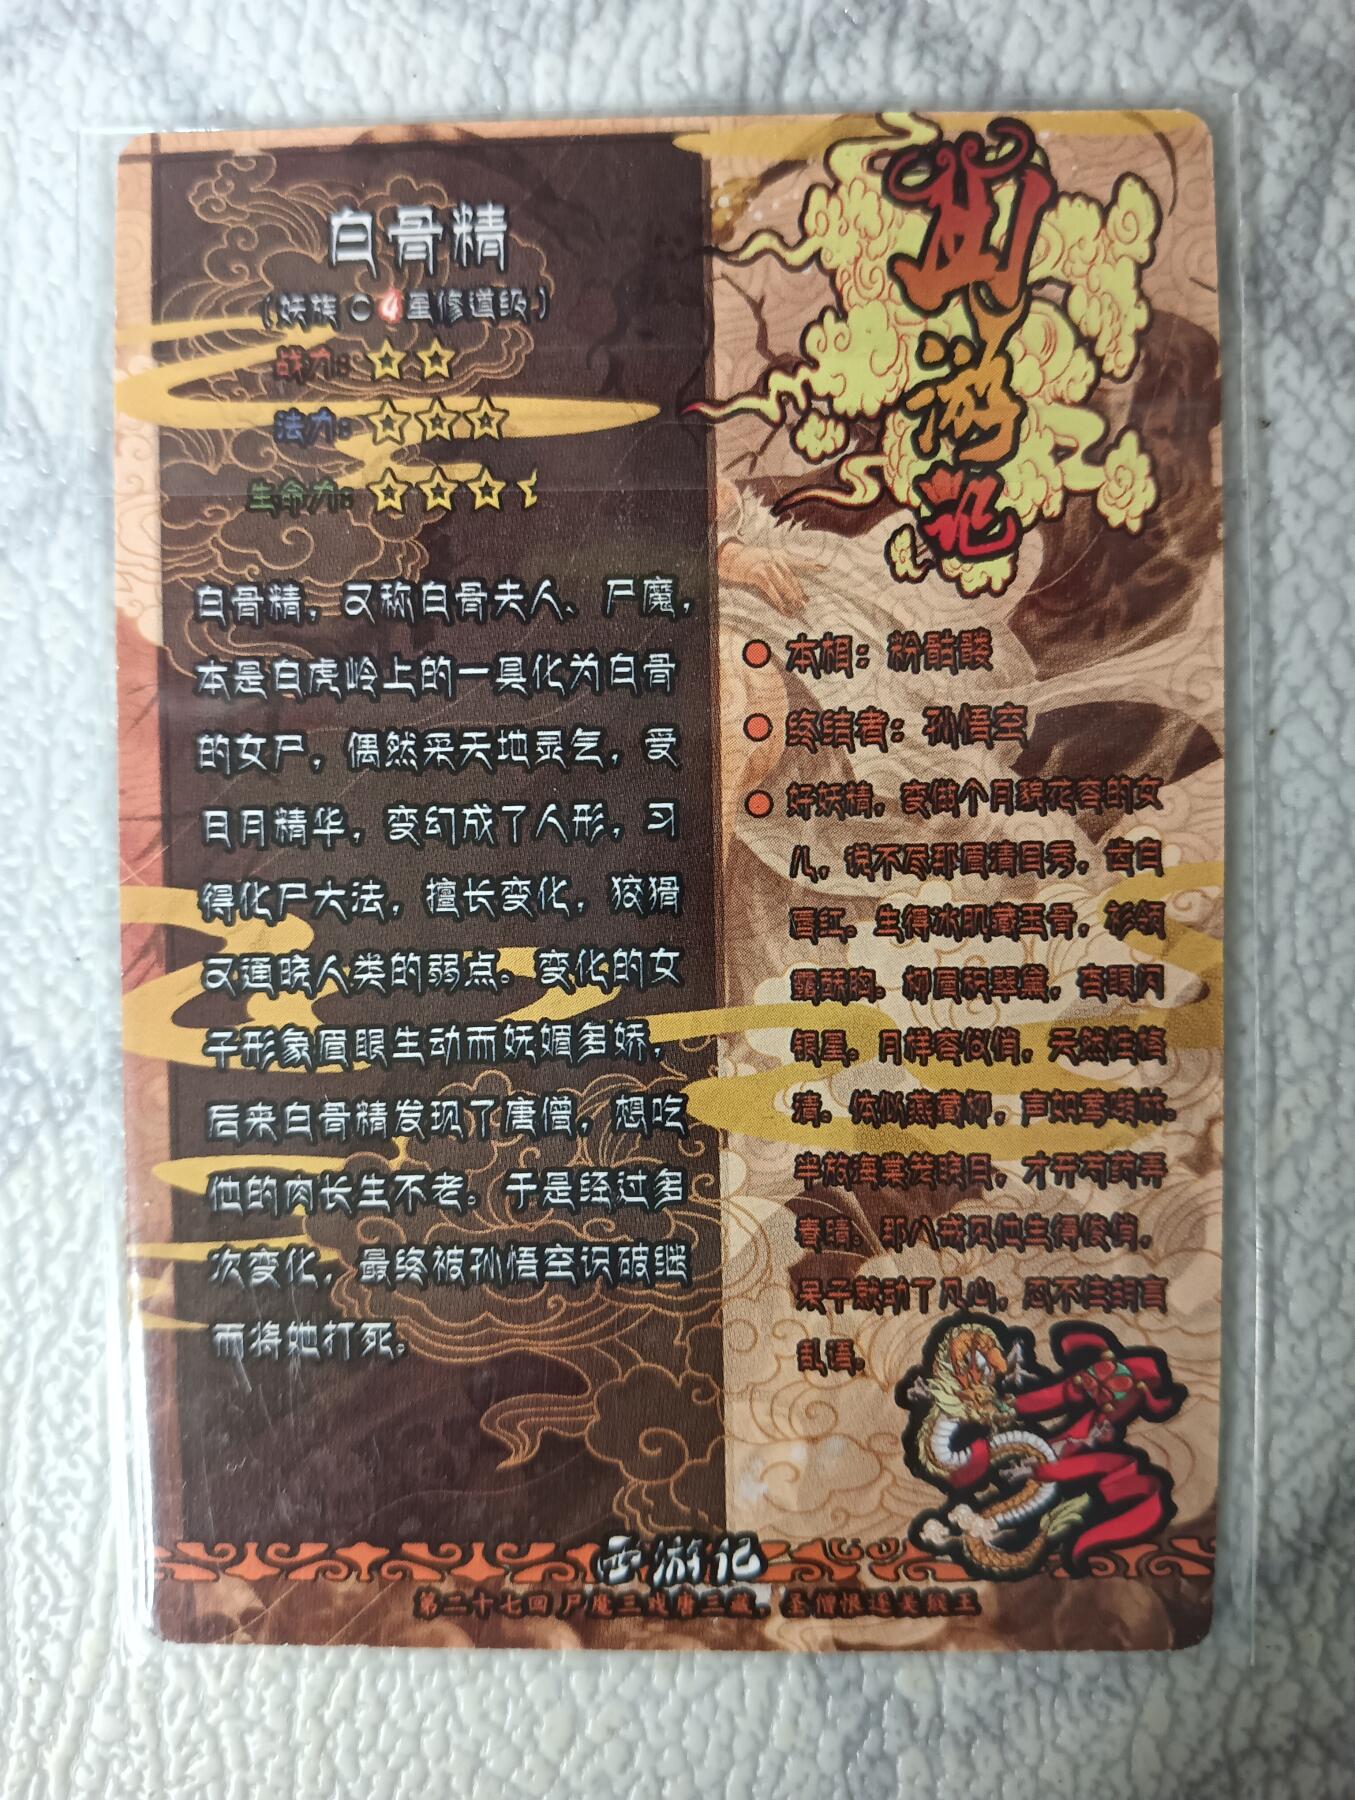 白骨精
(妖族 C 4星修道级)
战力:
法力:
生命力:
白骨精，又称白骨夫人、尸魔，
本是白虎岭上的一具化为白骨
的女尸，偶然采天地灵气，受
日月精华，变幻成了人形，习
得化尸大法，擅长变化，狡猾
又通晓人类的弱点。变化的女
子形象眉眼生动而妩媚多娇，
后来白骨精发现了唐僧，想吃
他的肉长生不老。于是经过多
次变化，最终被孙悟空识破继
而将她打死。
西游记
本相：粉骷髅
终结者：孙悟空
好妖精，变做个月貌花容的女
儿，说不尽那眉清目秀，齿白
唇红。生得冰肌藏玉骨，衫领
露酥胸。柳眉积翠黛，杏眼闪
银星。月样容仪俏，天然性格
清。体似燕藏柳，声如莺啭林。
半放海棠笼晓日，才开芍药弄
春晴。那八戒见他生得俊俏，
呆子就动了凡心，忍不住胡言
乱语。
西游记
第二十七回 尸魔三戏唐三藏，圣僧恨逐美猴王